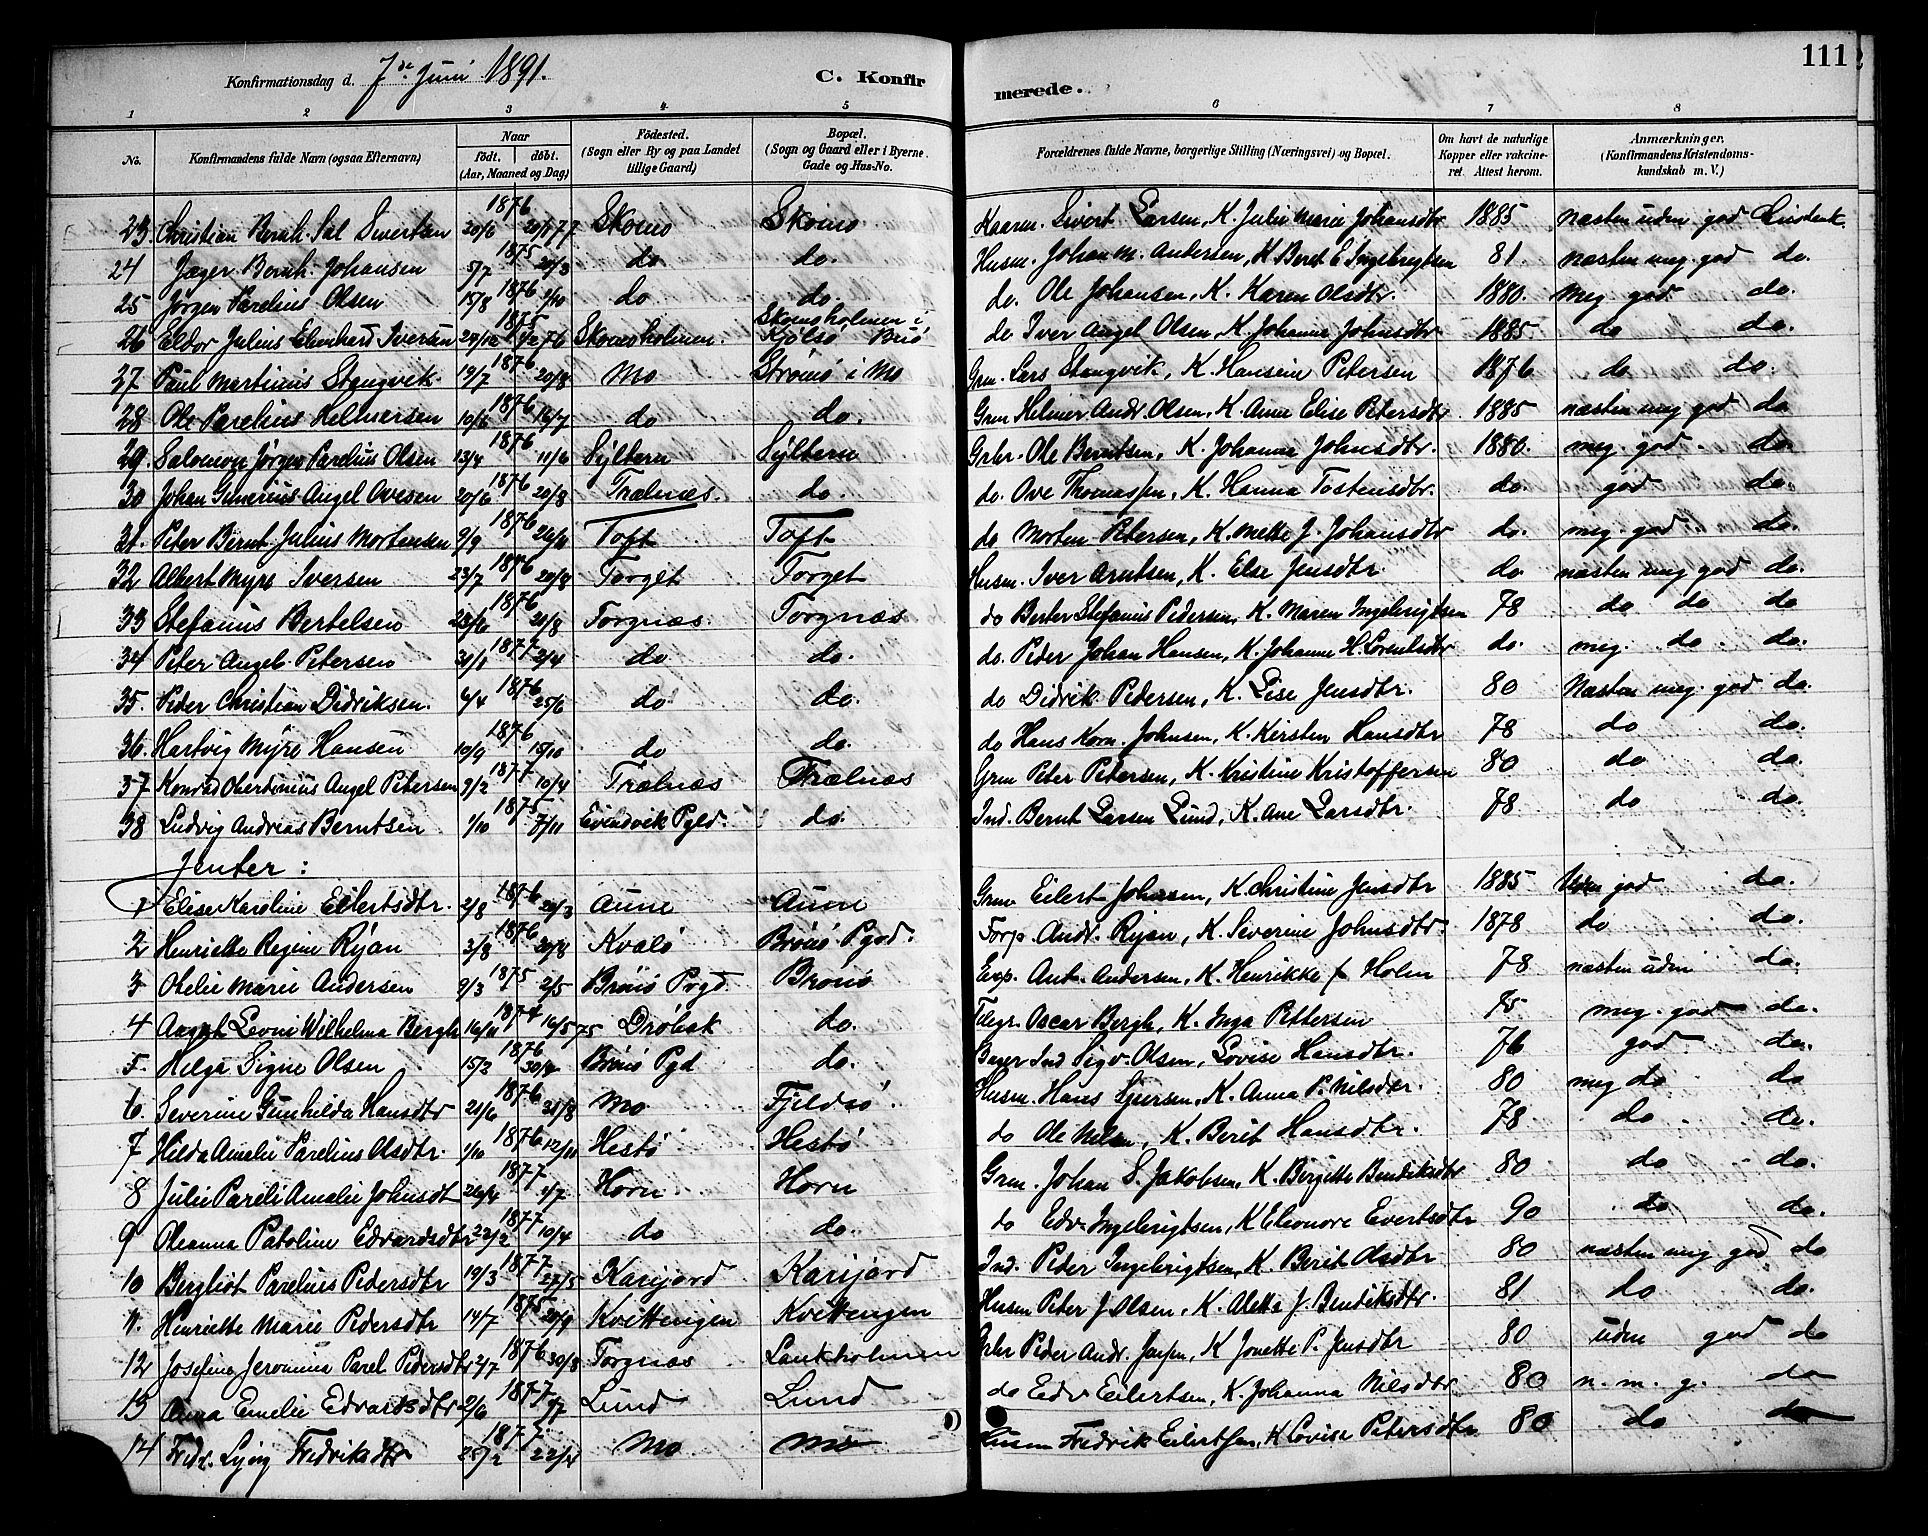 111
Konfirmationsdag d. 7de Juni 1891.
C. Konfirmerede.
1 2 3 4 5 6 7 8
No. Konfirmandens fulde Navn (ogsaa Efternavn) Naar födt. döbt. (Aar, Maaned og Dag) Födested. (Sogn eller By og paa Landet tillige Gaard) Bopæl. (Sogn og Gaard eller i Byerne Gade og Hus-No. Forældrenes fulde Navne, borgerlige Stilling (Næringsvei) og Bopæl. Om havt de naturlige Kopper eller vakcineret. Attest herom. Anmærkninger. (Konfirmandens Kristendomskundskab m. V.)
23. Christian Bernh. Sal Sivertsen 20/6 1876 Skomo Skomo Sivert Larsen, K. Julie Marie Johansdtr 1885 næsten uden god
24 Jæger Bernh. Johansen 5/7 1875 20/3 do do. Husm. Johan M. Andersen, K Beret E Ingebrigtsen 81. næsten meg god do.
25 Jörgen Parelius Olsen 15/8 1876 1/10 do do. do. Ole Johansen, K. Karen Olsdtr. 1880. meg god do.
26 Eldor Julius Iversen 1875 Skomsholmen. Skomsholmen i Kjölsö Brö de Iver Angel Olsen, K. Johanne Johnsdtr 1885 do do.
27 Paul Martinus Stangvik 19/7 1876 20/8 Mo Strömö i Mo Grm. Lars Stangvik, K. Hansine Petersen 1876 do do.
28 Ole Parelius Helmersen 10/6 1876 16/7 do do. Grm Helmer Andr. Olsen, K. Anne Elise Petersdtr 1885 næsten meg god do
29. Salomon Jörgen Parelius Olsen 13/4 1876 11/6 Sÿltern Sÿltern Grbr. Ole Berntsen, K. Johanne Johnsdtr. 1880. meg. god. do.
30 Johan Angel Ovesen 20/6 1876 20/8 Trælnæs. do. do. Ove Thomassen, K. Hanna Tostensdtr. do. god do.
31. Peter Bernt Julius Mortensen 9/9 1876 26/11 Toft Toft do Morten Petersen, K. Mette J. Johansdtr do. meg. god do.
32 Albert Myre Iversen 23/7 1876 20/8 Torget Torget Husm. Iver Arntsen, K. Else Jensdtr do næsten meg god do.
33 Stefanus Bertelsen 23/6 1876 20/8 Torgnæs. Torgnæs do Stefanus Pedersen, K. Maren Ingebrigtsen 78 do do do
34 Peter Angel Petersen 31/1 1877 2/4 do do. do. Peder Johan Hansen, K. Johanne H. do. meg. do do.
35. Peder Christian Didriksen. 4/4 1876 25/6 do do. do Didrik Pedersen, K. Lise Jensdtr. 80 Næsten meg. god do.
36. Hartvig Myre Hansen 10/9 1876 15/10 do do. do Hans Korn. Johnsen, K. Kirsten Hansdtr 78 do do.
37 Konrad Angel Petersen 9/2 1877 10/4 Trælnæs Trælnæs Grm Peter Petersen, K. Kristine Kristoffersen 80 do do.
38 Ludvig Andreas Berntsen 1/10 1875 7/11 Evindvik Pgld. do. Ind. Bernt Larsen Lund, K. Ane Larsdtr. 78 do do.
Jenter:
1 Elise Karoline Eilertsdtr. 2/8 1876 Aune Aune Grm Eilert Johnsen, K. Christine Jensdtr 1885 Uden god do.
2 Henriette Regine Rÿan 3/8 1876 20/8 Kvalö Brönö Pgd. Andr. Rÿan, K. Severine Johnsdtr. 1878 do do.
3 Otelie Marie Andersen 9/3 1875 2/5 Brönö Prgd Brönö Exp. Ant. Andersen, K. Henrikke f Holm 78 næsten uden do.
4 Levni Wilhelma Bergh 16/11 1874 16/5 75 Dröbak do. Telegr. Oscar Bergh, K. Inga Pettersen 75 meg. god do.
5. Helga Signe Olsen 15/2 1876 30/4 Brönö Pgd do. Sigv. Olsen, Lovise Hansdtr. 76 god do.
6. Severine Gunhilda Hansdtr 21/6 1876 Mo Fjeldsö. Husm. Hans K. Anna P. Nilsdtr. 80 meg do do
7 Hilda Amelie Parelius Olsdtr. 1/10 1876 12/11 Hestö Hestö do Ole Nilsen, K. Berit Hansdtr. 78 do do.
8 Julie Pareli Amalie Johnsdt 1877 1/7 Horn Horn Grm. Johan S. Jakobsen, K. Bergitte Bendiksdtr 80 do do.
9 Oleanna Patoline Edvardsdtr 22/2 1877 10/4 do do. do Edv. Ingebrigtsen, K Eleonore Evertsdtr 90 do do.
10 Bergliot Parelius Pedersdtr 19/3 1877 27/5 Karijord Karijord Ind. Peder Ingebrigtsen, K. Berit Olsdtr 80 næsten meg god do
11. Henriette Marie Pedersdtr 14/7 1875 20/9 Kvittengen Kvittengen Husm Peter J. Olsen, K. Alette J. Bendiksdtr. 81 do do.
12 Josefine Jeronima Parel Pedersdtr 2/7 1876 30/8 Torgnæs Lankholmen Grbr Peder Andr. Jensen, K Jonette P. Jensdtr 80 uden god do
13 Anna Emelie Edvardsdtr 2/6 1877 Lund Lund do Edv Eilertsen, K. Johanna Nilsdtr 80 n. m. g. do
14 Fredr. Fredriksdtr 25/2 1877 22/4 Mo Mo Husm Fredrik Eilertsen, K Lovise Petersdtr 80 do do